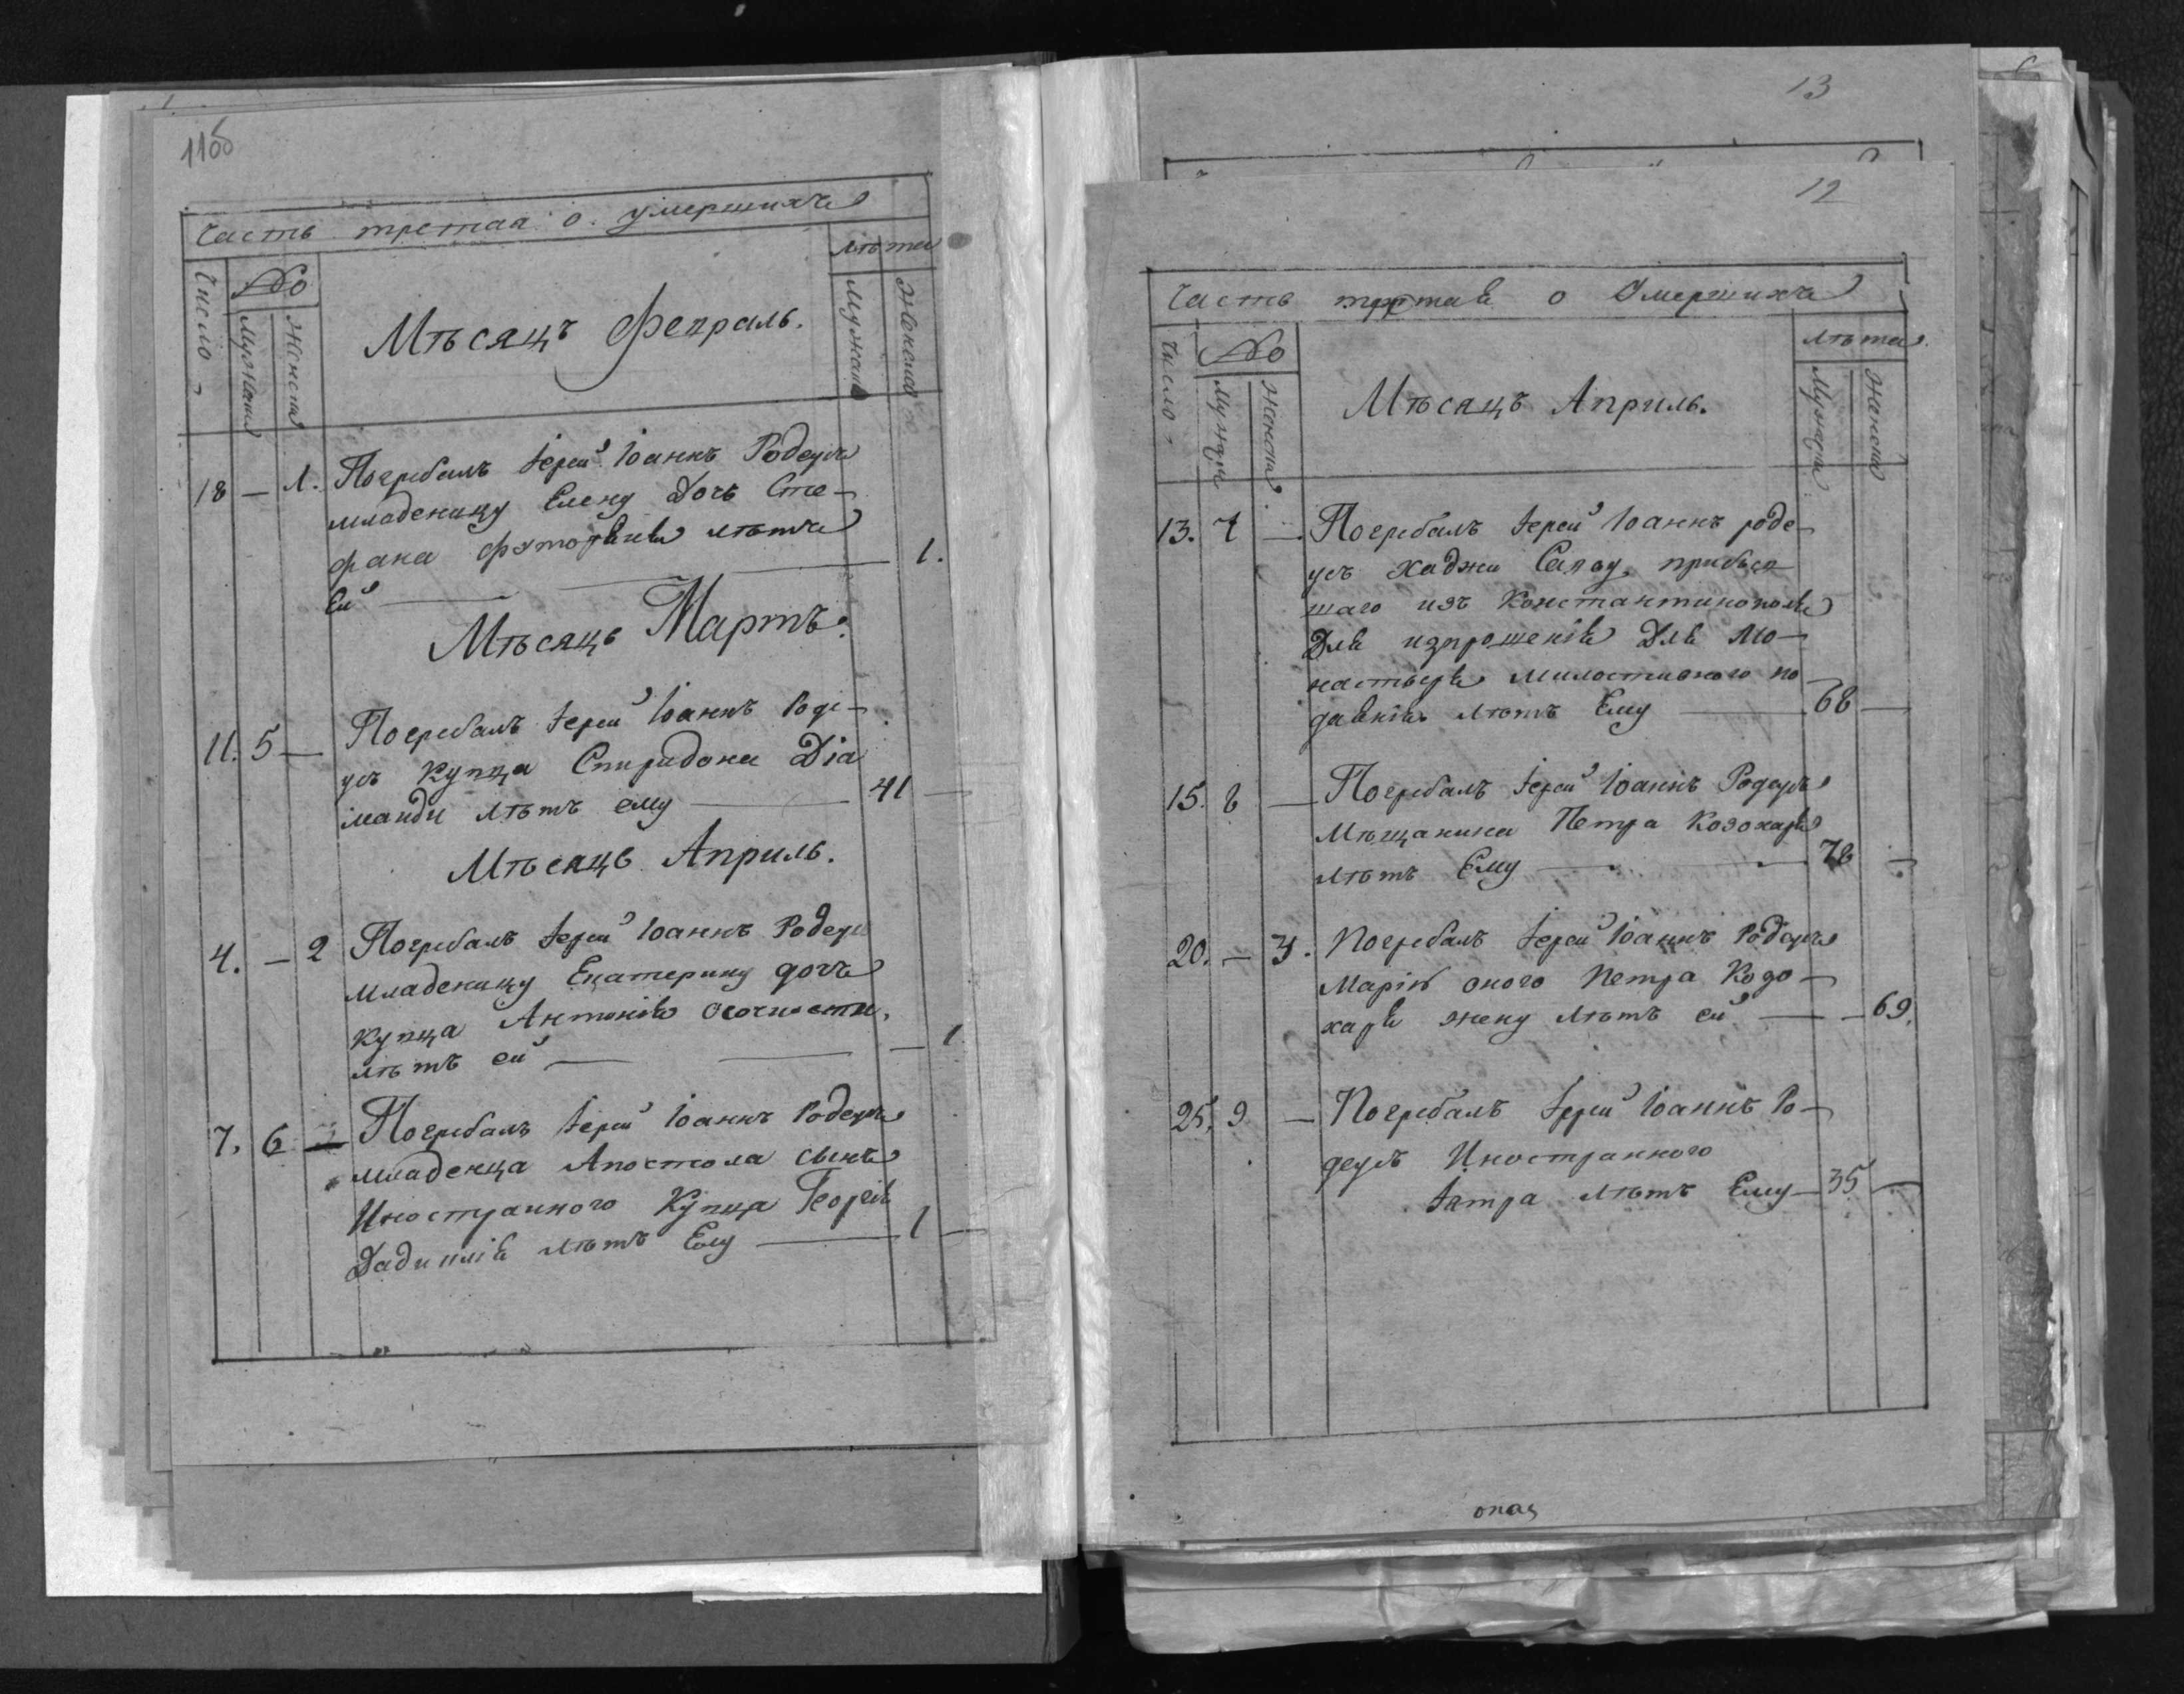 11об
Часть третая о умершихъ
Число
№
Мужеска
Женска
Мѣсяцъ Февраль.
лѣта
Мужеска
Женска
18 — 1. Погребалъ Іерей Іоаннъ Родеусъ
младеницу Елену Дочь Сте-
фана лѣтъ
Ей — 1.
Мѣсяцъ Мартъ.
11. 5 — Погребалъ Іерей Іоаннъ Роде-
усъ Купца Спиридона Діа
манди лѣтъ ему — 41 —
Мѣсяцъ Априль.
4. — 2 Погребалъ Іерей Іоаннъ Родеусъ
младеницу Екатерину дочь
купца Антонія
лѣтъ ей — 1
7. 6 — Погребалъ Іерей Іоаннъ Родеусъ
младенца Апостола сынъ
Иностранного Купца Георгія
лѣтъ Ему — 1 —
13
12
Часть третая о Умершихъ
Число
№
Мужеска
Женска
Мѣсяцъ Априль.
лѣта
Мужеска
Женска
13. 7 — Погребалъ Іерей Іоаннъ роде-
усъ Хаджи Савву прибыв
шаго изъ Константинополя
Для испрошенія Для Мо-
настыря милостивного по
даянія лѣтъ Ему — 68 —
15. 8 — Погребалъ Іерей Іоаннъ Родеусъ
Мѣщанина Петра Козохаря
лѣтъ Ему — 78 —
20. — 3. Погребалъ Іерей Іоаннъ Родеусъ
Марію оного Петра Козо-
харя жену лѣтъ ей — 69.
25. 9. — Погребалъ Іерей Іоаннъ Ро-
деусъ Иностранного
лѣтъ Ему — 35 —